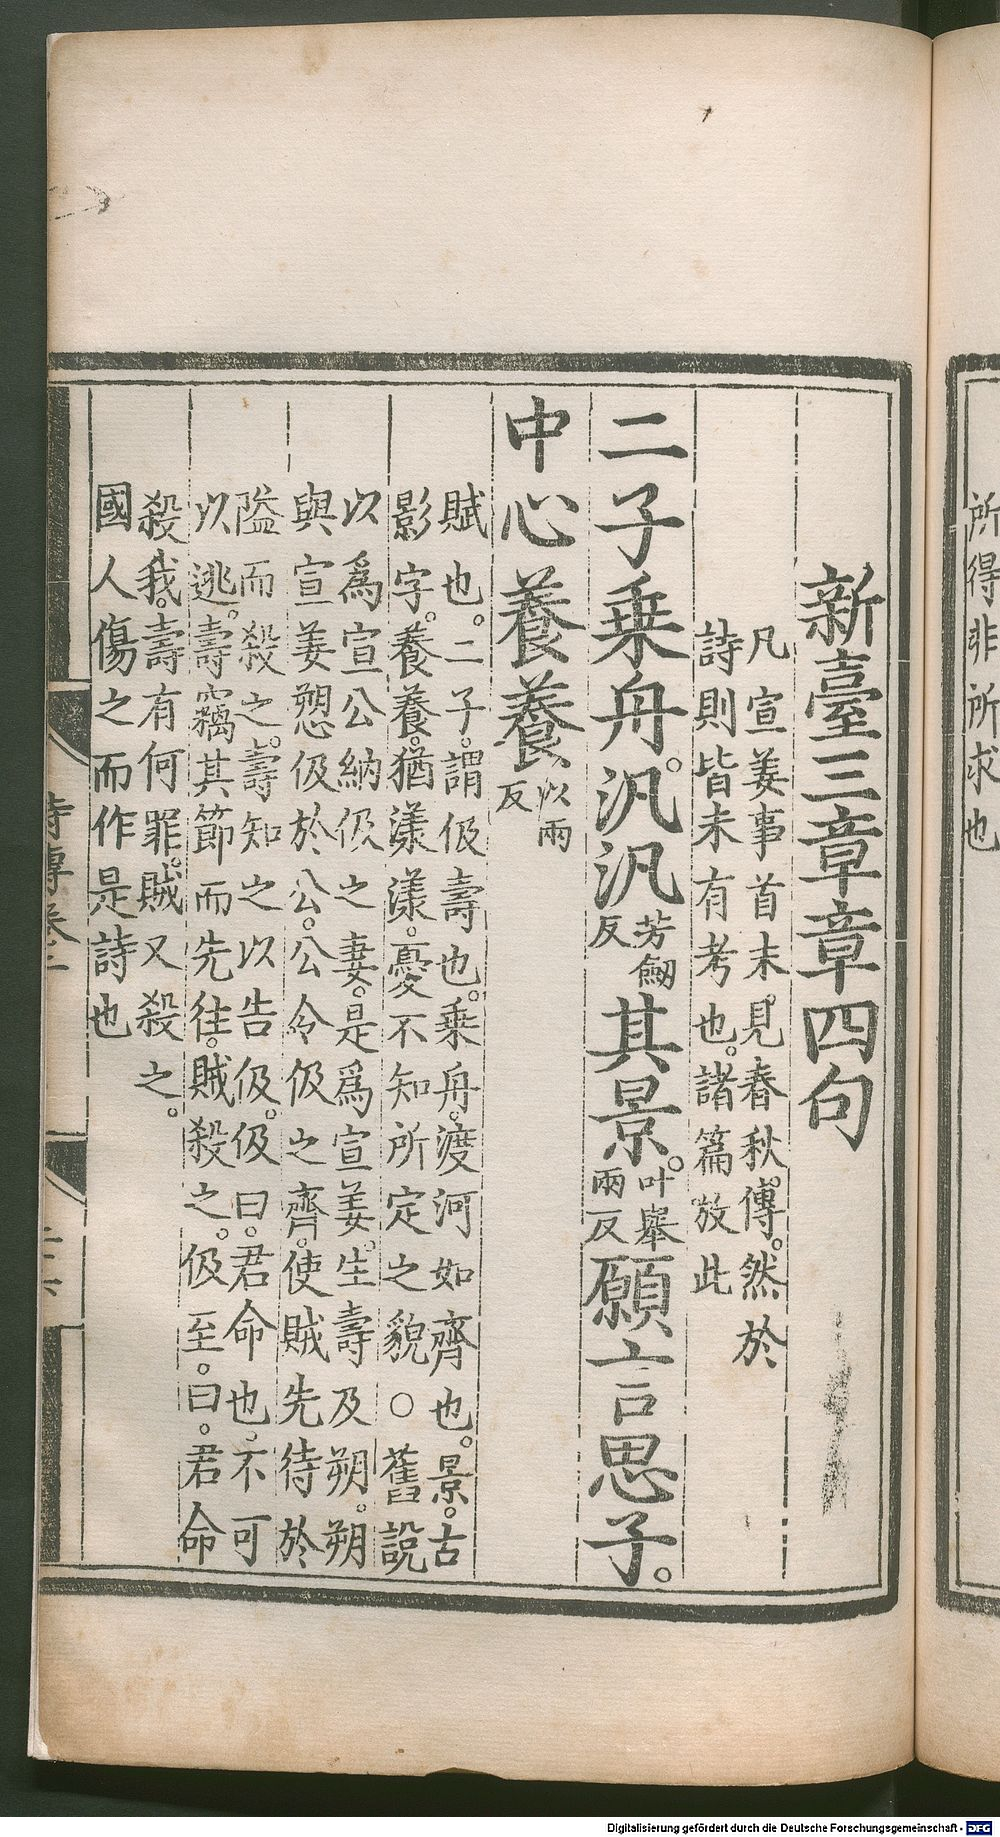 所得非所求也
新臺三章章四句
凡宣姜事首末見春秋傳。然於
詩則皆未有考也。諸篇放此
二子乗舟。汎汎芳劒反其景。叶舉兩反願言思子。
中心養養以兩反
賦也。二子。謂伋壽也。乗舟。渡河如齊也。景。古
影字。養養。猶漾漾。憂不知所定之貌○舊說
以爲宣公納伋之妻。是爲宣姜。生壽及朔。朔
與宣姜愬伋於公。公令伋之齊。使賊先待於
隘而殺之。壽知之以告伋。伋曰。君命也。不可
以逃。壽竊其節而先往。賊殺之。伋至。曰。君命
殺我。壽有何罪。賊又殺之。
國人傷之而作是詩也
詩傳卷二
Digitalisierung gefördert durch die Deutsche Forschungsgemeinschaft - DFG